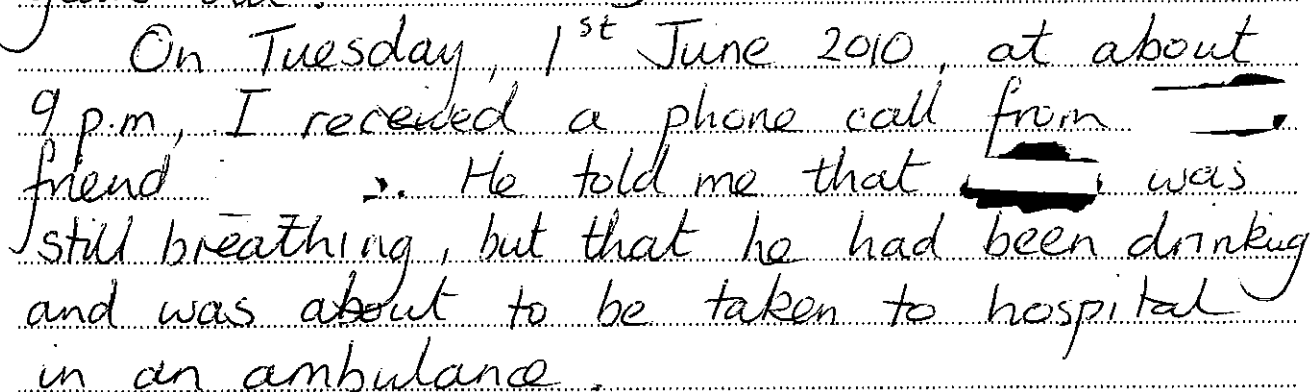 On Tuesday, 1st June 2010, at about
9 p.m, I received a phone call from
friend . He told me that was
still breathing, but that he had been drinking
and was about to be taken to hospital
in an ambulance.